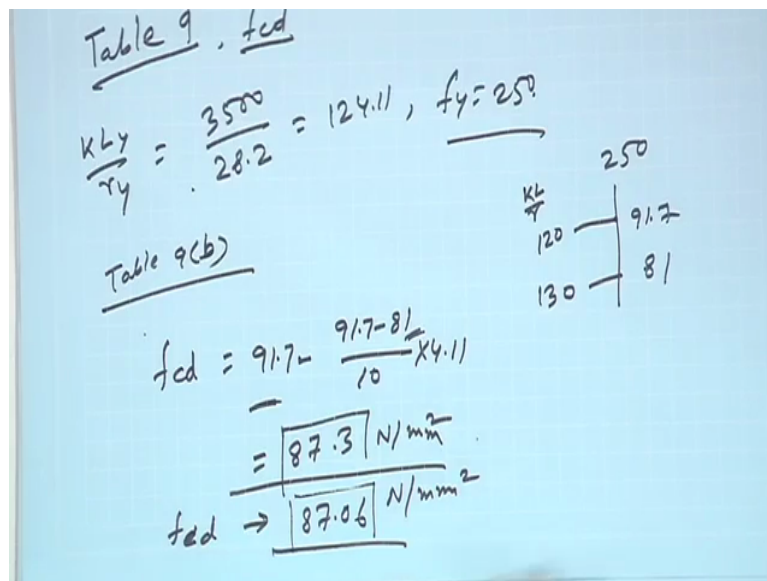 Table 9, fcd
KLy/ry = 3500/28.2 = 124.11, fy = 250
250
KL/r
120 91.7
130 81
Table 9(b)
fcd = 91.7 - (91.7-81)/10 × 4.11
= 87.3 N/mm²
fcd → 87.06 N/mm²